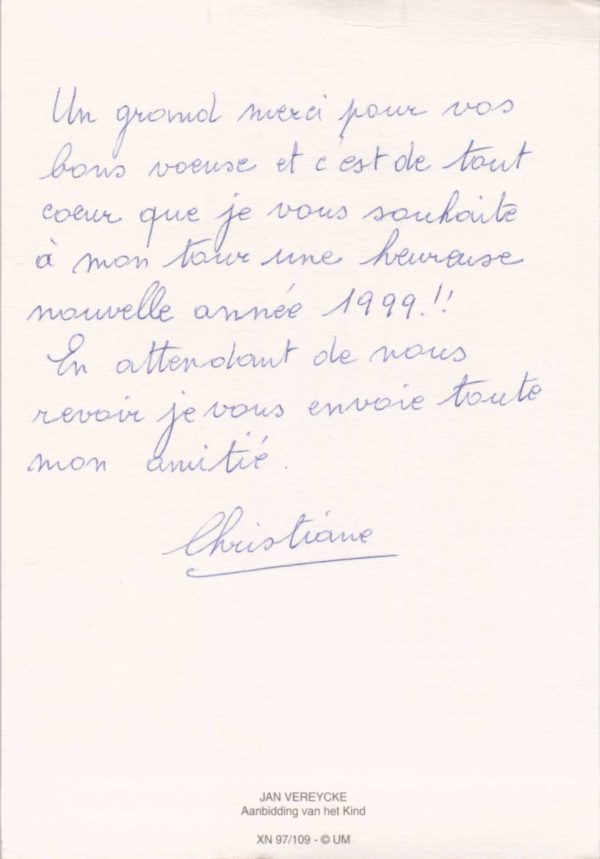 Un grand merci pour vos
bons voeuse et c'est de tout
coeur que je vous souhaite
à mon tour une heureuse
nouvelle année 1999.!!
En attendant de nous
revoir je vous envoie toute
mon amitié.
Christiane
JAN VEREYCKE
Aanbidding van het Kind
XN 97/109 - © UM